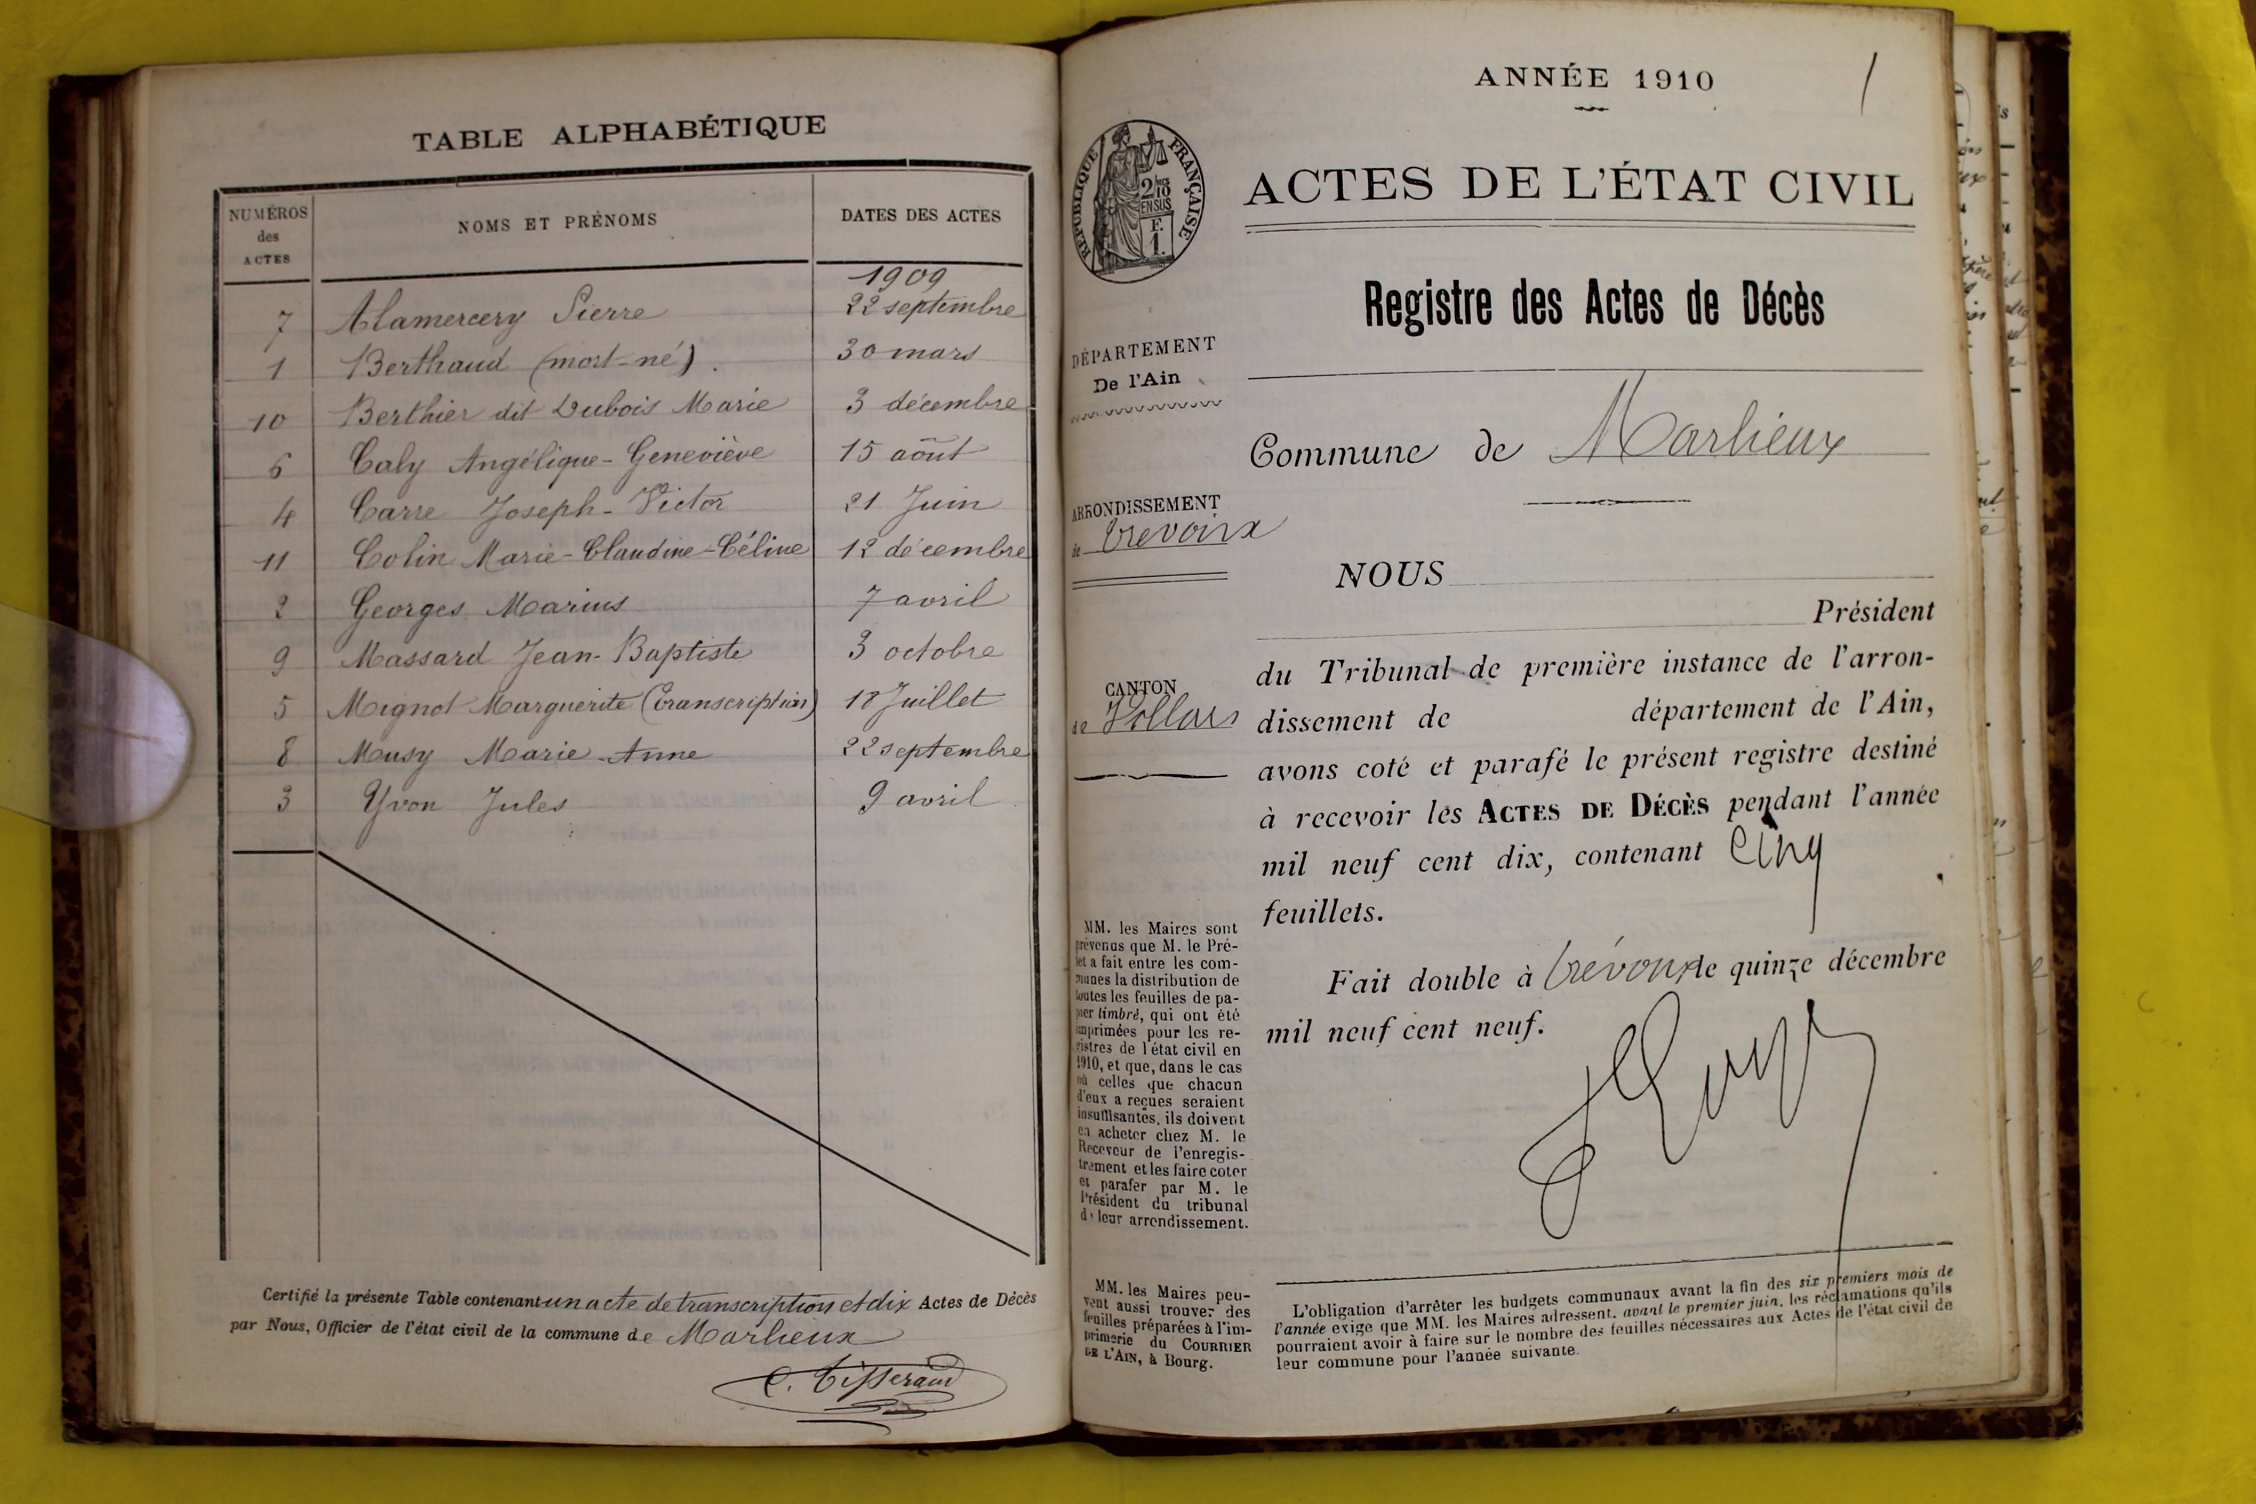 TABLE ALPHABÉTIQUE
NUMÉROS des ACTES NOMS ET PRÉNOMS DATES DES ACTES
1909
7 Alamercery Pierre 22 septembre
1 Berthaud (mort-né). 30 mars
10 Berthier dit Dubois Marie 3 décembre
6 Caly Angélique-Geneviève 15 août
4 Carre Joseph-Victor 21 Juin
11 Colin Marie-Claudine-Céline 12 décembre
2 Georges Marius 7 avril
9 Massard Jean-Baptiste 3 octobre
5 Mignot Marguerite (transcription) 18 Juillet
8 Musy Marie-Anne 22 septembre
3 Yvon Jules 9 avril
Certifié la présente Table contenant un acte de transcription et dix Actes de Décès
par Nous, Officier de l'état civil de la commune de Marlieux
C. Tisserand
ANNÉE 1910
1
RÉPUBLIQUE FRANÇAISE
2/10
EN SUS
F.
1.
ACTES DE L'ÉTAT CIVIL
Registre des Actes de Décès
DÉPARTEMENT
De l'Ain
Commune de Marlieux
ARRONDISSEMENT
de Trevoux
CANTON
de Villars
NOUS
Président
du Tribunal de première instance de l'arron-
dissement de département de l'Ain,
avons coté et parafé le présent registre destiné
à recevoir les ACTES DE DÉCÈS pendant l'année
mil neuf cent dix, contenant Cinq
feuillets.
Fait double à Trévoux le quinze décembre
mil neuf cent neuf.
MM. les Maires sont
prévenus que M. le Pré-
fet a fait entre les com-
munes la distribution de
toutes les feuilles de pa-
pier timbré, qui ont été
imprimées pour les re-
gistres de l'état civil en
1910, et que, dans le cas
où celles que chacun
d'eux a reçues seraient
insuffisantes, ils doivent
en acheter chez M. le
Receveur de l'enregis-
trement et les faire coter
et parafer par M. le
Président du tribunal
de leur arrondissement.
MM. les Maires peu-
vent aussi trouver des
feuilles préparées à l'im-
primerie du COURRIER
DE L'AIN, à Bourg.
L'obligation d'arrêter les budgets communaux avant la fin des six premiers mois de
l'année exige que MM. les Maires adressent, avant le premier juin, les réclamations qu'ils
pourraient avoir à faire sur le nombre des feuilles nécessaires aux Actes de l'état civil de
leur commune pour l'année suivante.